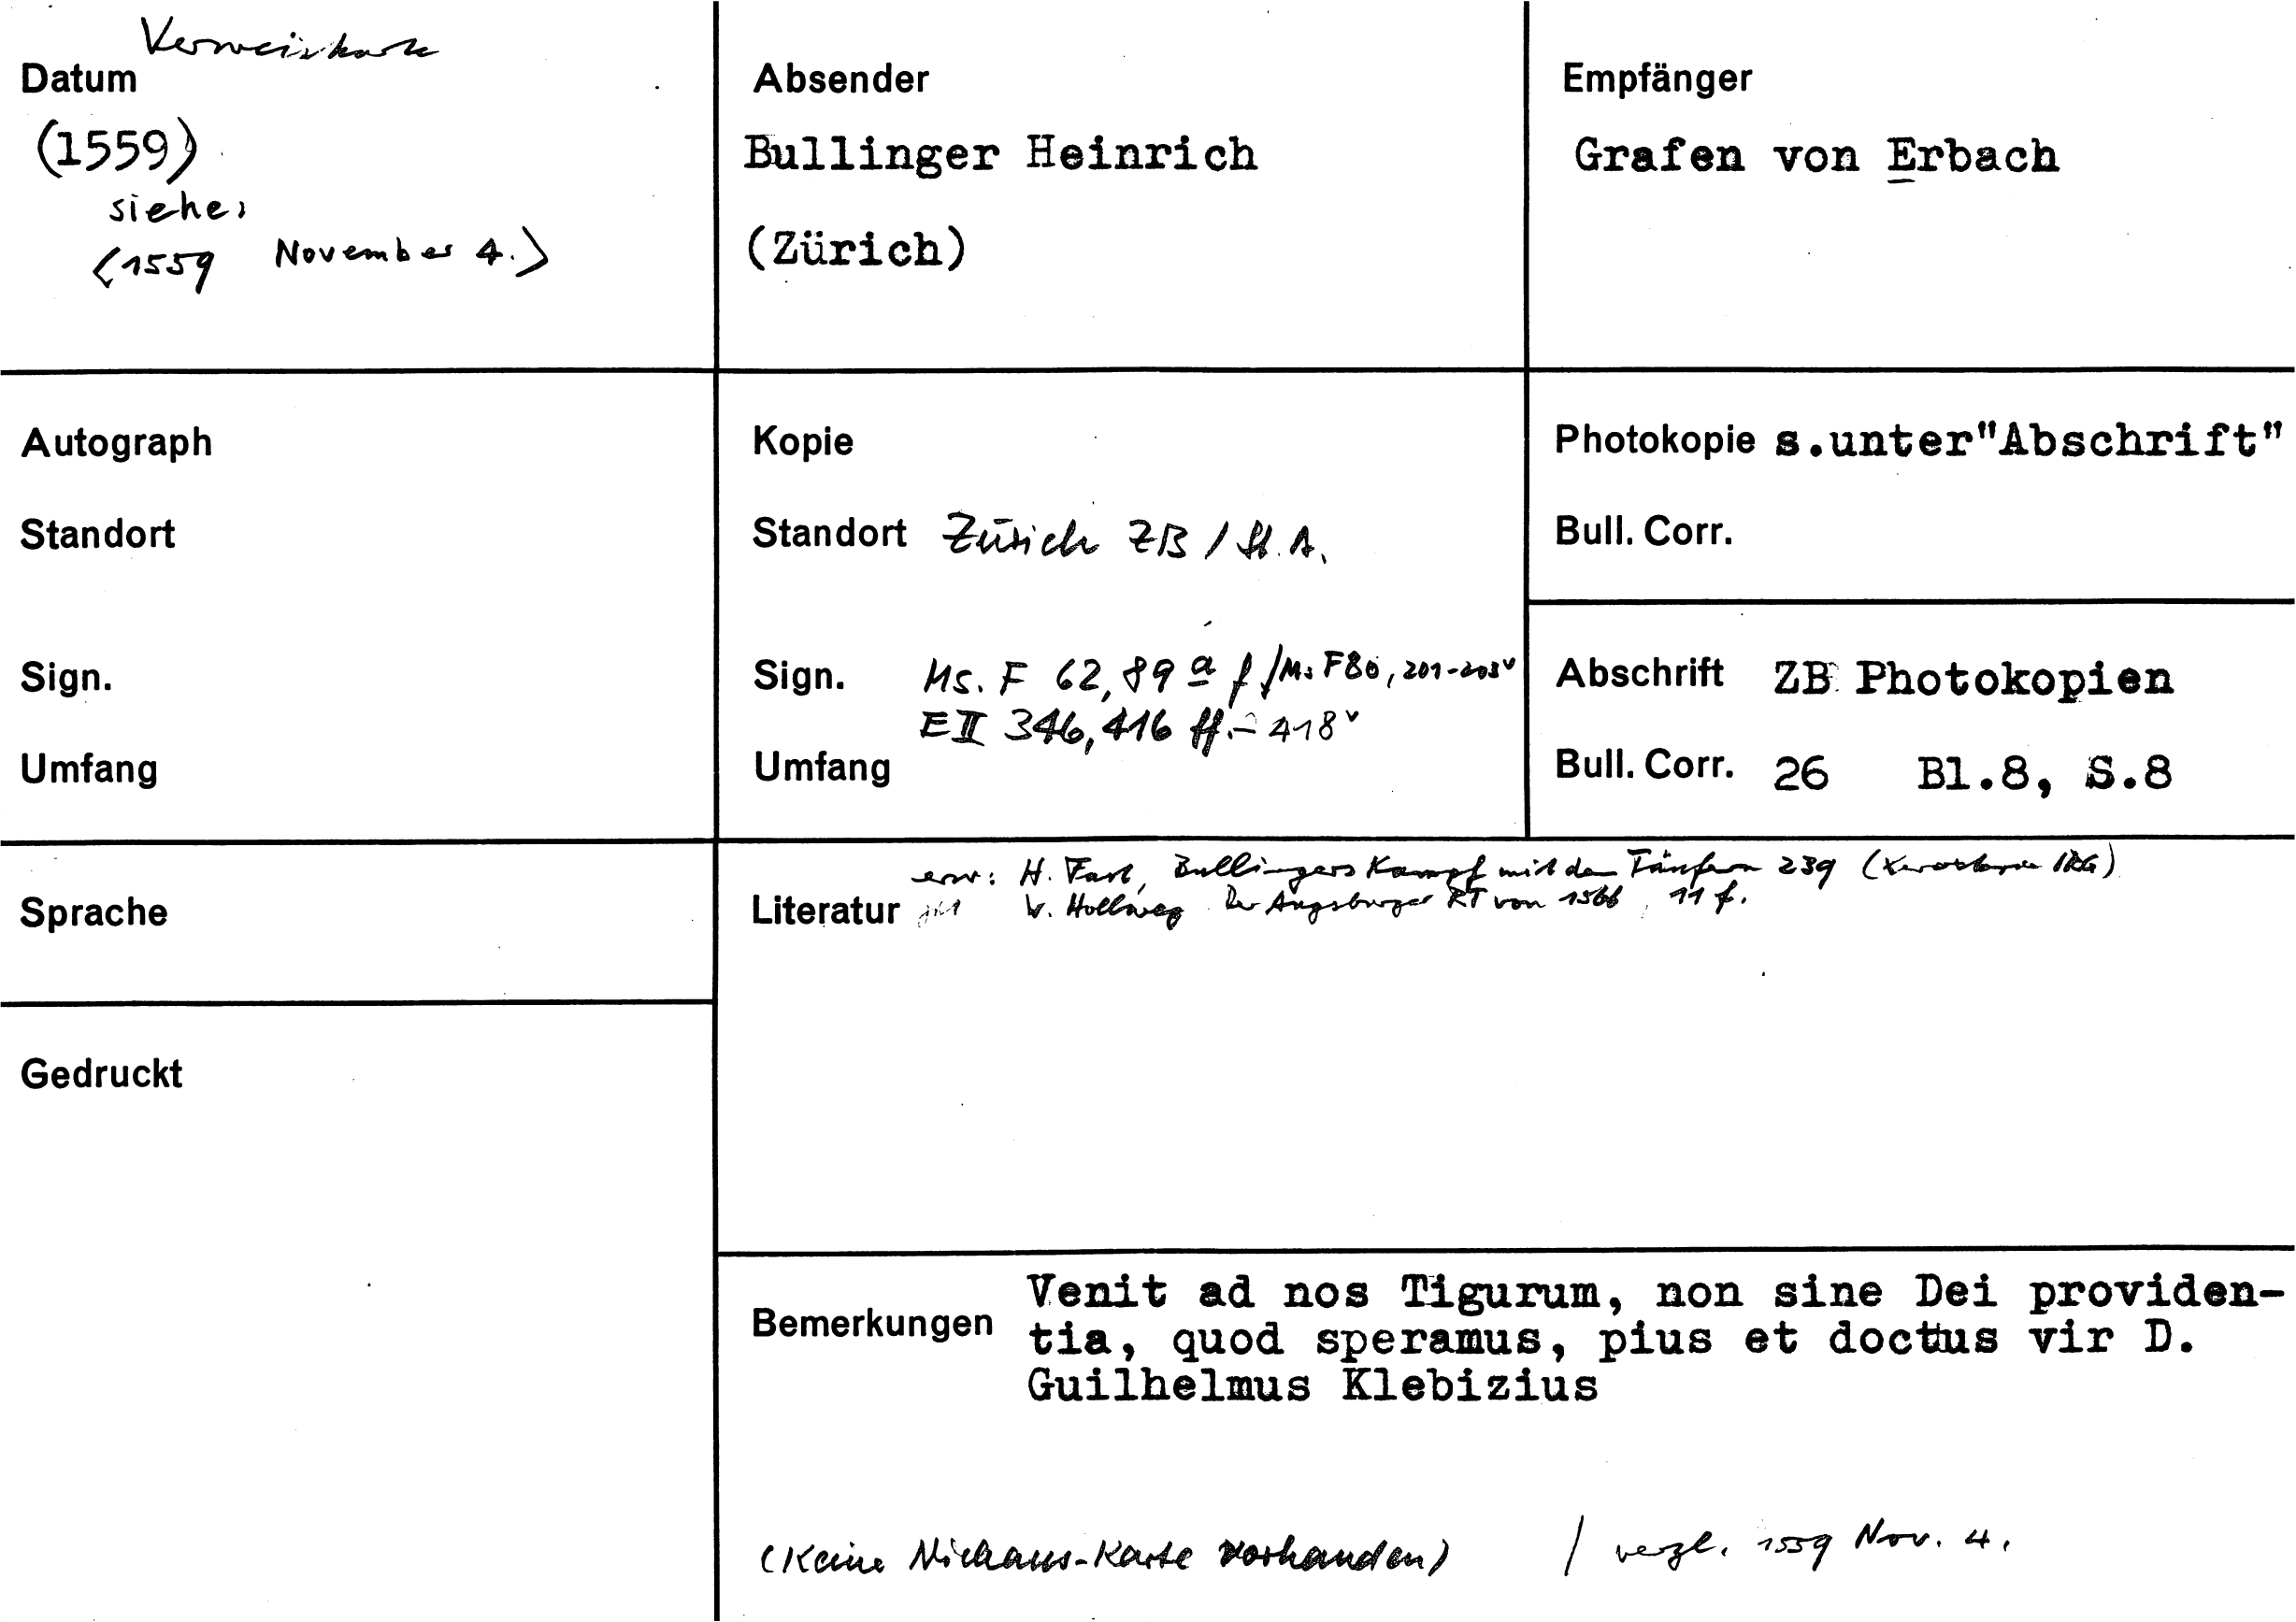 Verweiskarte
Datum
(1559)
siehe:
(1559 November 4.)
Absender
Bullinger Heinrich
(Zürich)
Empfänger
Grafen von Erbach
Autograph
Standort
Sign.
Umfang
Kopie
Standort Zürich ZB / St.A.
Sign. Ms. F 62, 89 a f / Ms F 80, 201-203v
E II 346, 416 ff. - 418v
Umfang
Photokopie s.unter"Abschrift"
Bull. Corr.
Abschrift ZB Photokopien
Bull. Corr. 26 Bl.8, S.8
Sprache
Gedruckt
erw: H. Fast, Bullingers Kampf mit den Täufern 239 (Xerokopie IRG)
Literatur W. Hollweg Der Augsburger RT von 1566, 11 f.
Bemerkungen
Venit ad nos Tigurum, non sine Dei providen-
tia, quod speramus, pius et doctus vir D.
Guilhelmus Klebizius
(Keine Niehaus-Karte vorhanden) / vergl. 1559 Nov. 4.